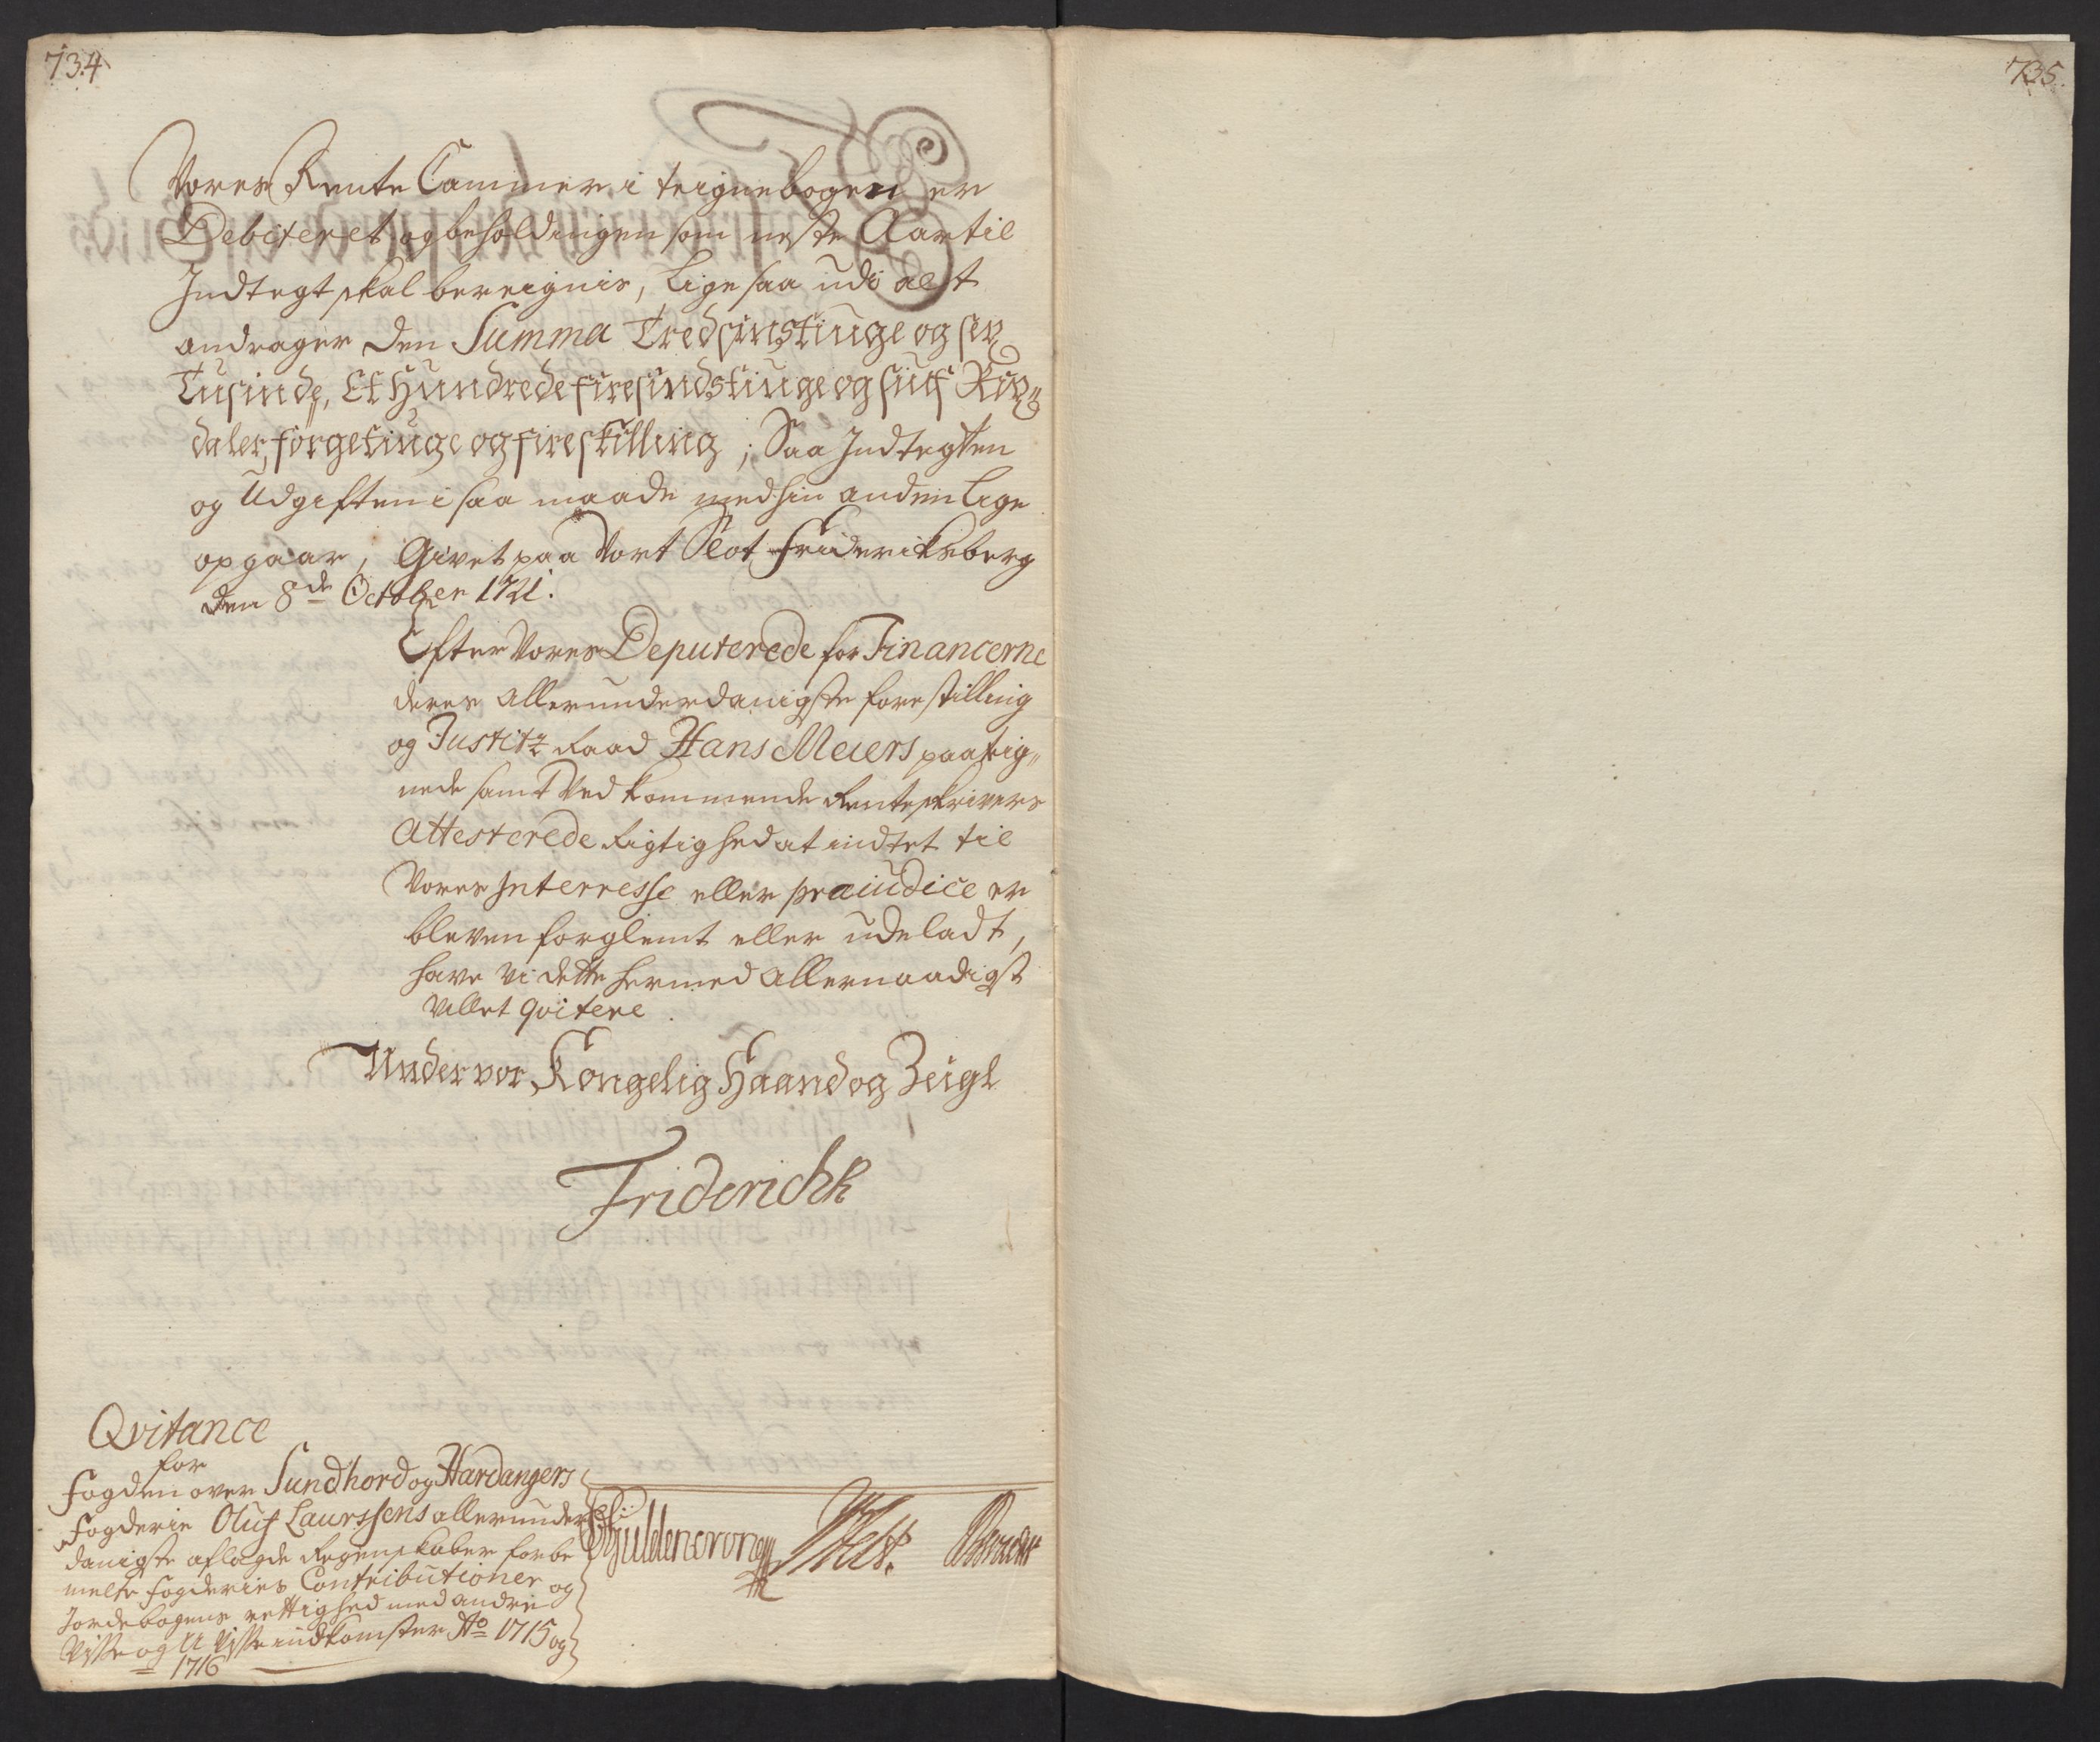 734
Vores Rente Cammer i teignebogen er
Debiteret, og beholdingen som neste Aar til
Indtegt skal bereignis, lige saa udi alt
andrager den Summa Tredsinstiuge og sex
Tusinde, Et Hundrede firesindstiuge og siuf Rix„
daler,førgetiuge og fire skilling; Saa Indtegten
og Udgiften i saa maade med hin anden lige
opgaar, Givet paa Vort Slot Frideriksberg
den 8de October 1721.
Efter Vores Deputerede for Financerne
deres allerunderdanigste forestilling
og Justitz Raad Hans Meiers paateig„
nede samt Vedkommende Renteskrivers
Attesterede Rigtighed at indtet til
Vores Interresse eller præiudice er
bleven forglemt eller udeladt,
have Vi dette hermed allernaadigst
Villet qvitere.
Under vor Kongelig Haand og Zeigl
Friderich R
Qvitance
for
Fogden over Sundhord og Hardangers
Fogderie Oluf Laurssens allerunder
danigste aflagde Regenskaber for be
melte Fogderies Contributioner og
Jordebogens rettighed med andre
Visse og U Visse indkomster Ao 1715 og
1716
Guldencrone
735